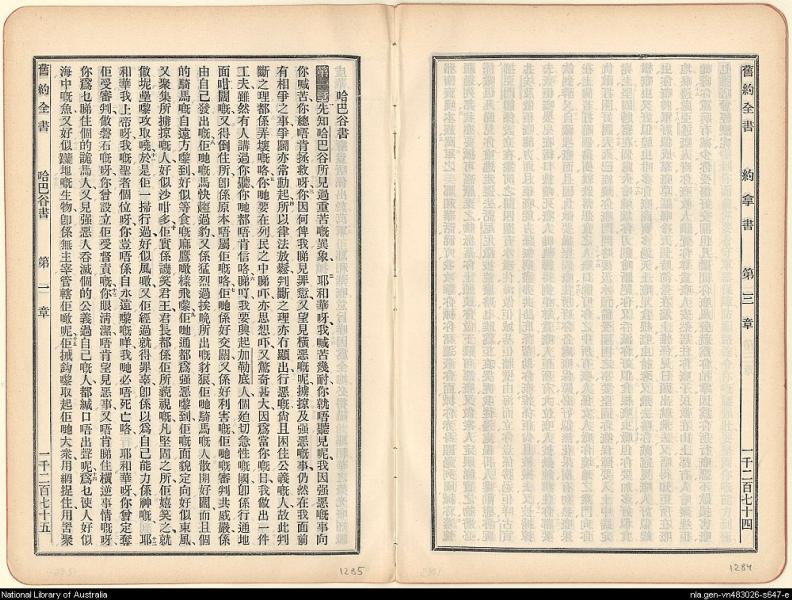 舊約全書 約拿書 第三章 一千二百七十四
1284
哈巴谷書
第一章先知哈巴谷所見過重苦嘅異象、耶和華呀我喊苦幾耐你就唔聽見呢我因強惡嘅事向
你喊苦你總唔肯拯救呀你因何俾我睇見罪愆又望見橫惡嘅呢擄掠及強惡嘅事仍然在我面前
有相爭之事爭鬭亦常動起所以律法放鬆判斷之理亦冇顯出行惡嘅尙且困住公義嘅人故此判
斷之理都係弄壞嘅咯你哋要在列民之中睇吓亦思想吓又驚奇甚大因爲當你嘅日我做出一件
工夫雖然有人講過你聽你哋都唔肯信咯睇吖我要興起加勒底人個廹切急性嘅國卽係行通地
面咁闊嘅又得倒住所卽係原本唔屬佢嘅咯佢哋係好交關又係好利害嘅佢哋嘅審判共威嚴係
由自己發出嘅佢哋嘅馬快趯過豹又係猛烈過挨晚所出嘅豺狼佢哋騎馬嘅人散開好闊而且個
的騎馬嘅自遠方嚟到好似等食嘅麻鷹噉樣飛嚟佢哋通都爲強惡嚟到佢嘅面貌定向好似東風
又聚集所擄掠嘅人好似沙咁多佢實係譏笑君王君長都係佢所藐視嘅凡堅固之所佢嬉笑之就
做坭壘嚟攻取嘵於是佢一掃行過好似風噉又佢經過就得罪辜卽係以爲自己能力係神嘅、耶
和華我上帝呀我嘅聖者個位呀你豈唔係自永遠嚟嘅咩我哋必唔死亡咯、耶和華呀你曾定奪
佢受審判做磐石嘅呀你曾設立佢受督責嘅你眼清潔唔肯望見惡事又唔肯睇住橫逆事情嘅呀
你爲乜睇住個的詭馬人又見強惡人吞滅個的公義過自己嘅人都緘口唔出聲呢爲乜使人好似
海中嘅魚又好似躝地嘅生物卽係無主宰管轄佢噉呢佢搣鈎嚟取起佢哋大衆用網捉住用罟聚
舊約全書 哈巴谷書 第一章 一千二百七十五
1285
National Library of Australia
nla.gen-vn483026-s647-e